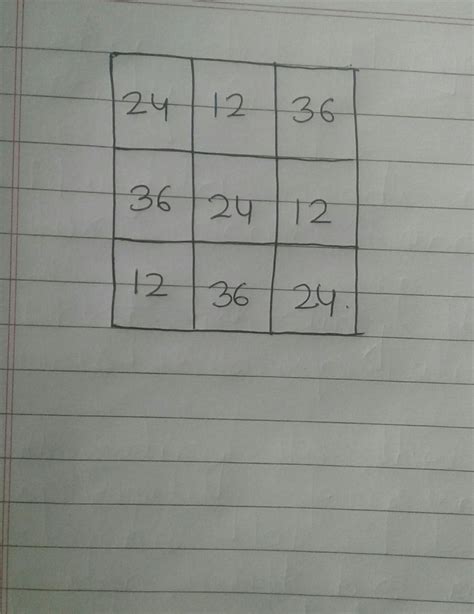 24 12 36
36 24 12
12 36 24.